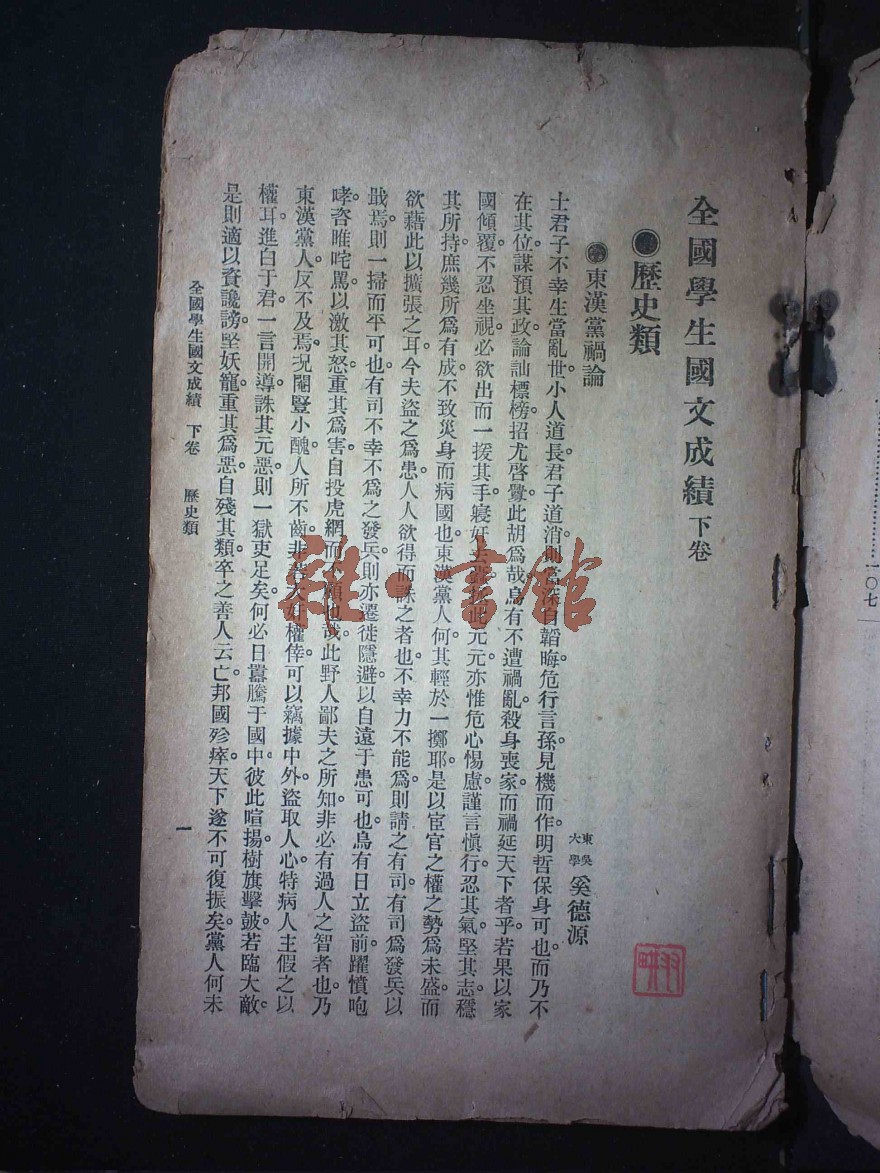 全國學生國文成績 下卷
●歷史類
●東漢黨禍論
東吳大學 奚德源
士君子不幸生當亂世。小人道長。君子道消。則當深自韜晦。危行言孫。見機而作。明哲保身可也。而乃不
在其位。謀預其政。論訕標榜。招尤啓釁。此胡爲哉。烏有不遭禍亂。殺身喪家。而禍延天下者乎。若果以家
國傾覆。不忍坐視。必欲出而一援其手。寢奸去 此元元。亦惟危心惕慮。謹言愼行。忍其氣。堅其志。穩
其所持。庶幾所爲有成。不致災身而病國也。東漢黨人。何其輕於一擲耶。是以宦官之權之勢爲未盛。而
欲藉此以擴張之耳。今夫盜之爲患。人人欲得而誅之者也。不幸力不能爲。則請之有司。有司爲發兵以
戢焉。則一掃而平可也。有司不幸不爲之發兵。則亦遷徙隱避。以自遠于患可也。烏有日立盜前。躍憤咆
哮。咨睢咤罵。以激其怒。重其爲害。自投虎網而不顧也哉。此野人鄙夫之所知。非必有過人之智者也。乃
東漢黨人。反不及焉。況閹豎小醜。人所不齒。非若大奸權倖。可以竊據中外。盜取人心。特病人主假之以
權耳。進白于君。一言開導。誅其元惡。則一獄吏足矣。何必日囂騰于國中。彼此喧揚。樹旗擊鼓。若臨大敵。
是則適以資讒謗。堅妖寵。重其爲惡。自殘其類。卒之善人云亡。邦國殄瘁。天下遂不可復振矣。黨人何未
全國學生國文成績 下卷 歷史類
一
一〇七
雜·書館